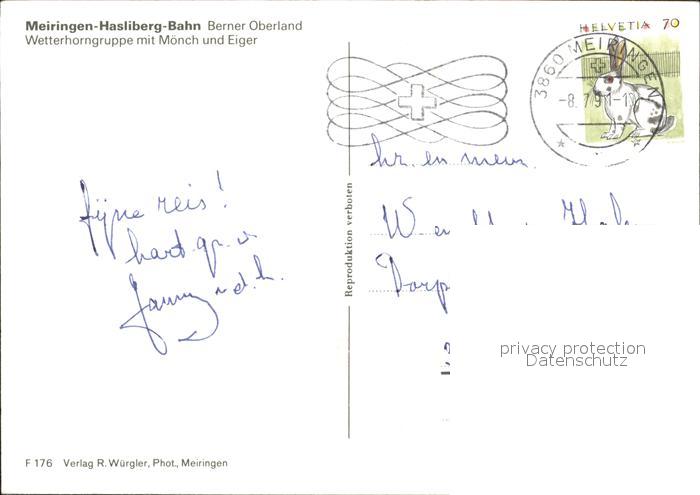 Meiringen-Hasliberg-Bahn Berner Oberland
Wetterhorngruppe mit Mönch und Eiger
HELVETIA 70
3860 MEIRINGEN
-8. 7. 91-1
fijne reis!
hart. gr. v
Janny
hr. en mevr.
W
Dorp
Reproduktion verboten
privacy protection
Datenschutz
F 176 Verlag R. Würgler, Phot., Meiringen